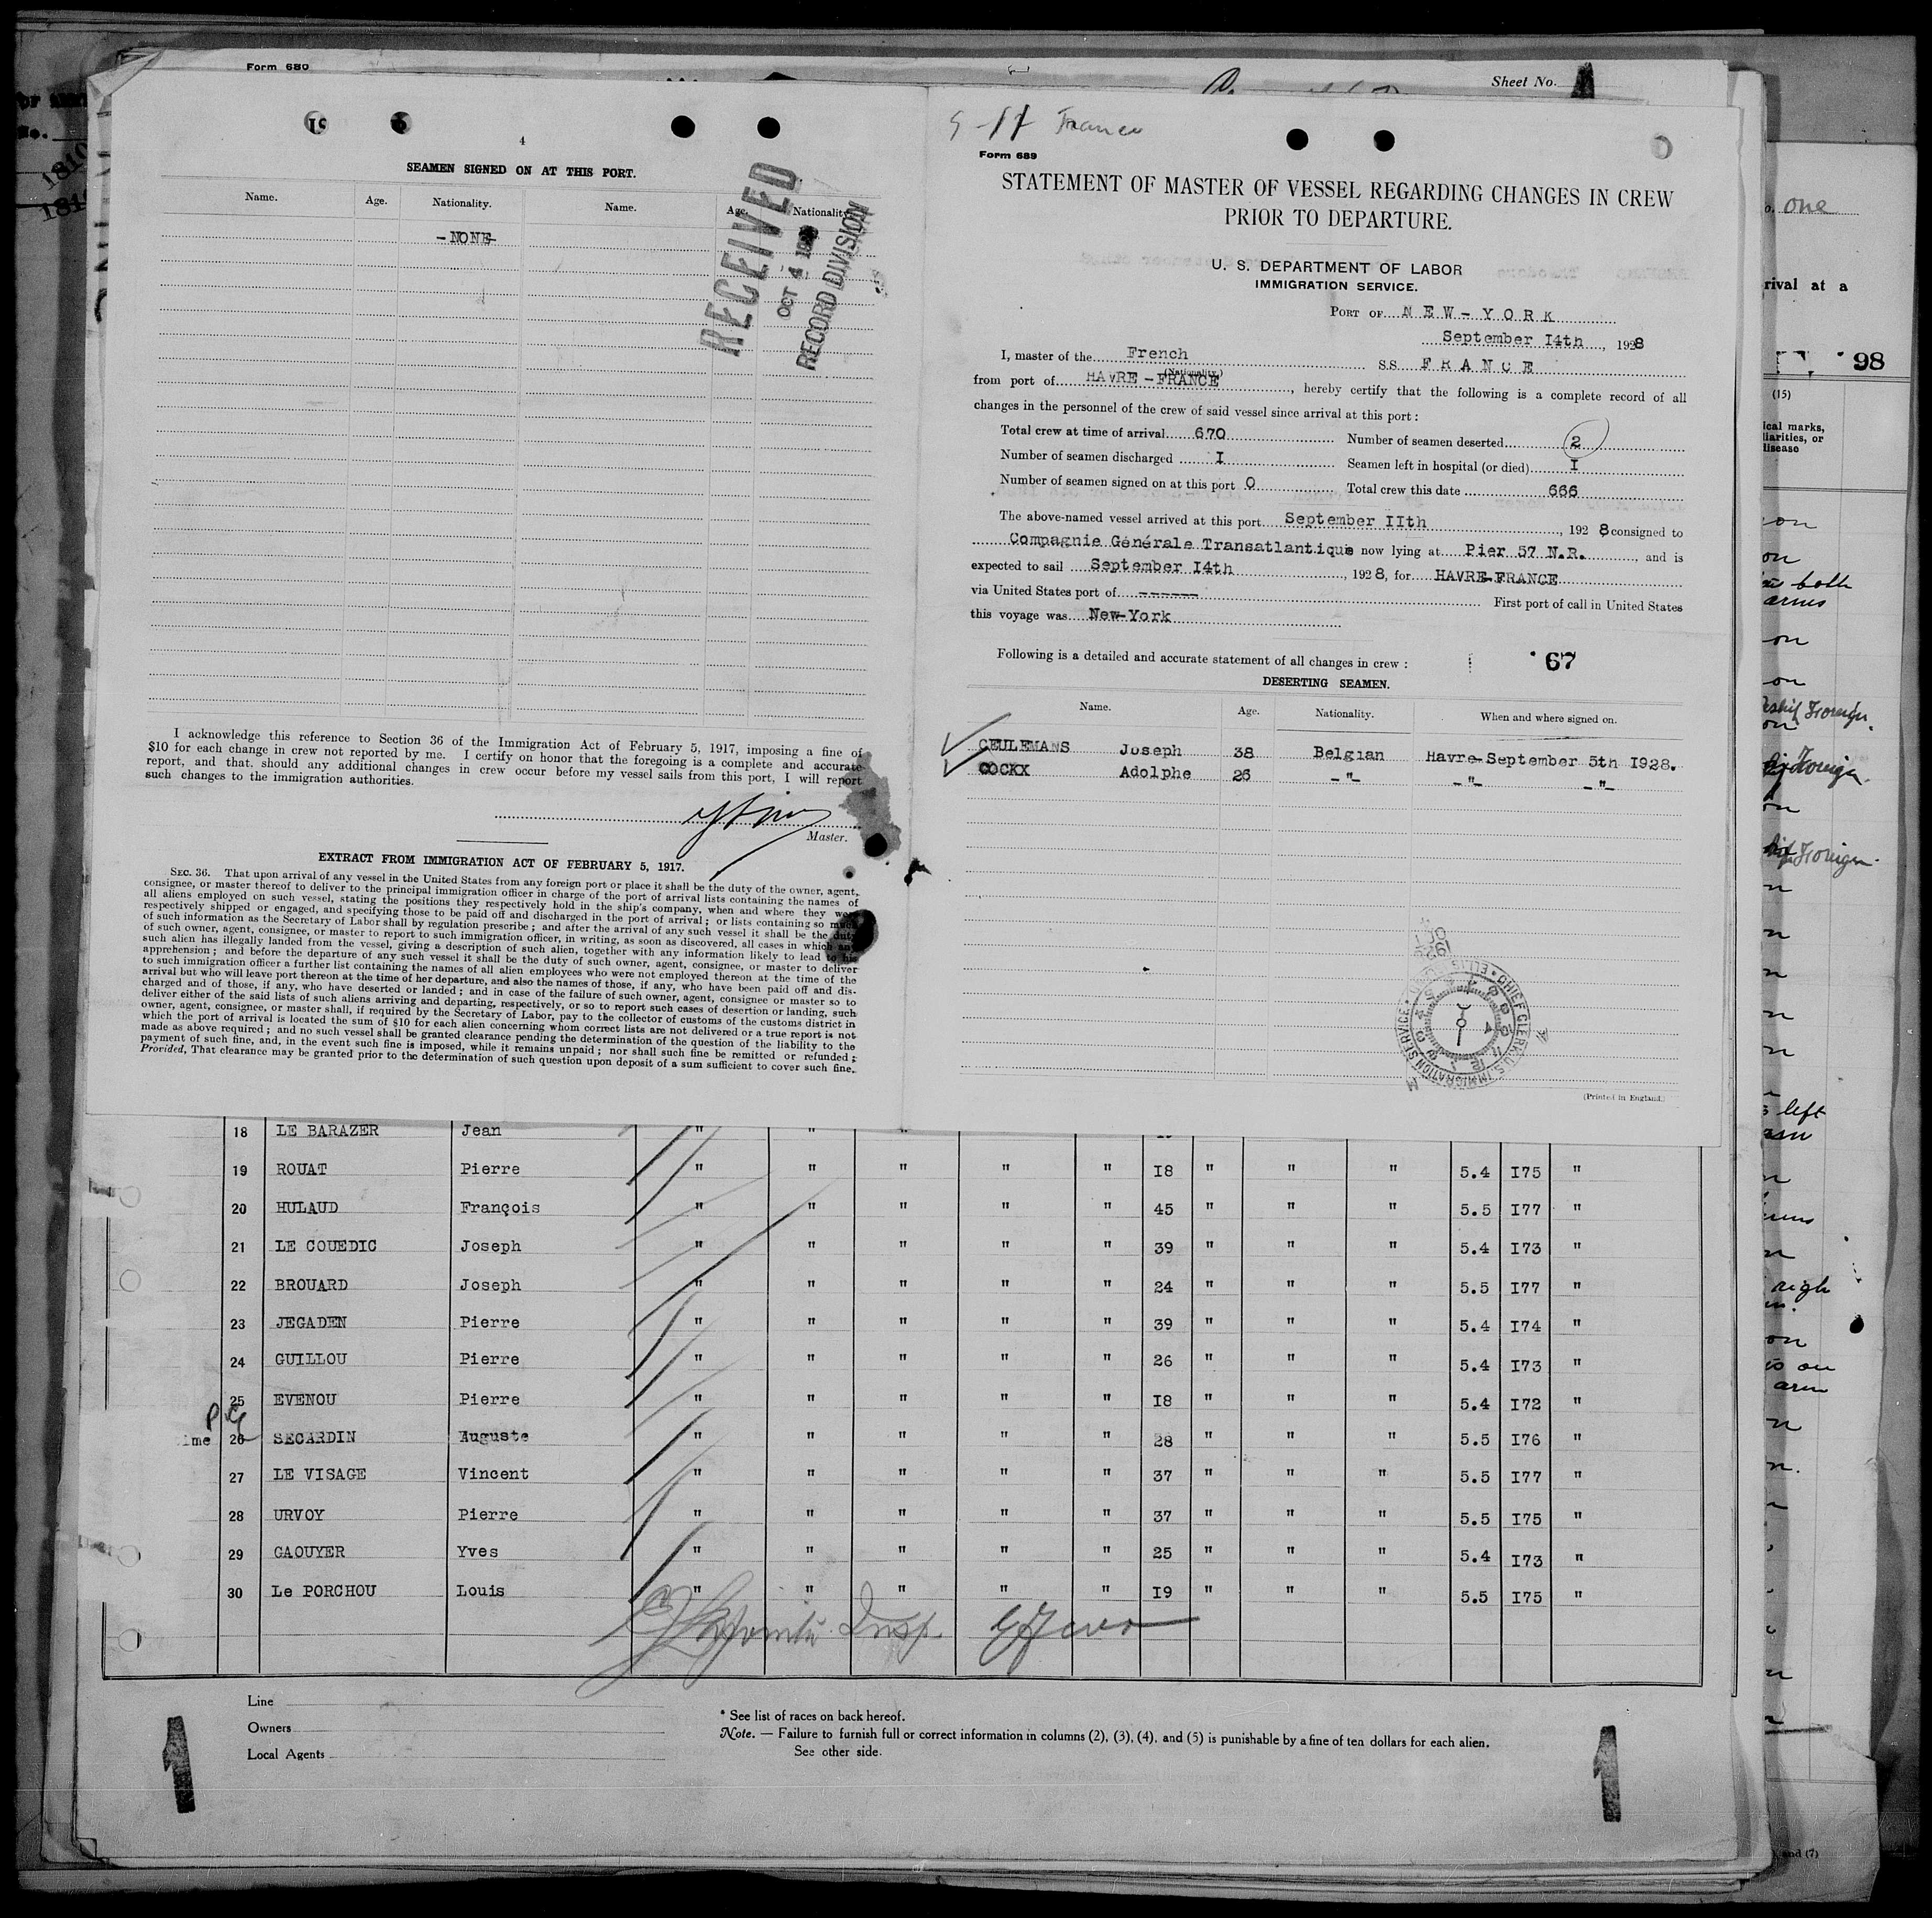 Form 680
Sheet No.
4
SEAMEN SIGNED ON AT THIS PORT.
Name. Age. Nationality. Name. Age. Nationality.
-NONE-
RECEIVED
OCT 4
RECORD DIVISION
I acknowledge this reference to Section 36 of the Immigration Act of February 5, 1917, imposing a fine of
$10 for each change in crew not reported by me. I certify on honor that the foregoing is a complete and accurate
report, and that should any additional changes in crew occur before my vessel sails from this port, I will report
such changes to the immigration authorities.
Master.
EXTRACT FROM IMMIGRATION ACT OF FEBRUARY 5, 1917.
SEC. 36. That upon arrival of any vessel in the United States from any foreign port or place it shall be the duty of the owner, agent,
consignee, or master thereof to deliver to the principal immigration officer in charge of the port of arrival lists containing the names of
all aliens employed on such vessel, stating the positions they respectively hold in the ship's company, when and where they were
respectively shipped or engaged, and specifying those to be paid off and discharged in the port of arrival; or lists containing so much
of such information as the Secretary of Labor shall by regulation prescribe; and after the arrival of any such vessel it shall be the duty
of such owner, agent, consignee, or master to report to such immigration officer, in writing, as soon as discovered, all cases in which any
such alien has illegally landed from the vessel, giving a description of such alien, together with any information likely to lead to his
apprehension; and before the departure of any such vessel it shall be the duty of such owner, agent, consignee, or master to deliver
to such immigration officer a further list containing the names of all alien employees who were not employed thereon at the time of the
arrival but who will leave port thereon at the time of her departure, and also the names of those, if any, who have been paid off and dis-
charged and of those, if any, who have deserted or landed; and in case of the failure of such owner, agent, consignee or master so to
deliver either of the said lists of such aliens arriving and departing, respectively, or so to report such cases of desertion or landing, such
owner, agent, consignee, or master shall, if required by the Secretary of Labor, pay to the collector of customs of the customs district in
which the port of arrival is located the sum of $10 for each alien concerning whom correct lists are not delivered or a true report is not
made as above required; and no such vessel shall be granted clearance pending the determination of the question of the liability to the
payment of such fine, and, in the event such fine is imposed, while it remains unpaid; nor shall such fine be remitted or refunded;
Provided, That clearance may be granted prior to the determination of such question upon deposit of a sum sufficient to cover such fine.
France
Form 689
STATEMENT OF MASTER OF VESSEL REGARDING CHANGES IN CREW
PRIOR TO DEPARTURE.
U. S. DEPARTMENT OF LABOR
IMMIGRATION SERVICE.
PORT OF NEW-YORK
September I4th, 1928
I, master of the French SS FRANCE
(Nationality.)
from port of HAVRE-FRANCE, hereby certify that the following is a complete record of all
changes in the personnel of the crew of said vessel since arrival at this port:
Total crew at time of arrival 670 Number of seamen deserted 2
Number of seamen discharged I Seamen left in hospital (or died) I
Number of seamen signed on at this port 0 Total crew this date 666
The above-named vessel arrived at this port September IIth, 1928 consigned to
Compagnie Générale Transatlantique now lying at Pier 57 N.R., and is
expected to sail September I4th, 1928, for HAVRE-FRANCE
via United States port of ------ First port of call in United States
this voyage was New-York
Following is a detailed and accurate statement of all changes in crew: 67
DESERTING SEAMEN.
Name. Age. Nationality. When and where signed on.
CEULEMANS Joseph 38 Belgian Havre-September 5th I928.
COCKX Adolphe 26 -"- -"- -"-
CHIEF CLERK U.S. IMMIGRATION SERVICE
(Printed in England.)
18 LE BARAZER Jean " " "
19 ROUAT Pierre " " " " " I8 " " " 5.4 I75 "
20 HULAUD François " " " " " 45 " " " 5.5 I77 "
21 LE COUEDIC Joseph " " " " " 39 " " " 5.4 I73 "
22 BROUARD Joseph " " " " " 24 " " " 5.5 I77 "
23 JEGADEN Pierre " " " " " 39 " " " 5.4 I74 "
24 GUILLOU Pierre " " " " " 26 " " " 5.4 I73 "
25 EVENOU Pierre " " " " " I8 " " " 5.4 I72 "
26 SECARDIN Auguste " " " " " 28 " " " 5.5 I76 "
27 LE VISAGE Vincent " " " " " 37 " " " 5.5 I77 "
28 URVOY Pierre " " " " " 37 " " " 5.5 I75 "
29 GAOUYER Yves " " " " " 25 " " " 5.4 I73 "
30 Le PORCHOU Louis " " " " " I9 " " " 5.5 I75 "
Insp.
Line
Owners
Local Agents
* See list of races on back hereof.
Note. — Failure to furnish full or correct information in columns (2), (3), (4), and (5) is punishable by a fine of ten dollars for each alien.
See other side.
1
1
one
rival at a
98
(15)
ical marks,
liarities, or
disease
both
arms
Foreign
Foreign
Foreign
left
arm
and (7)